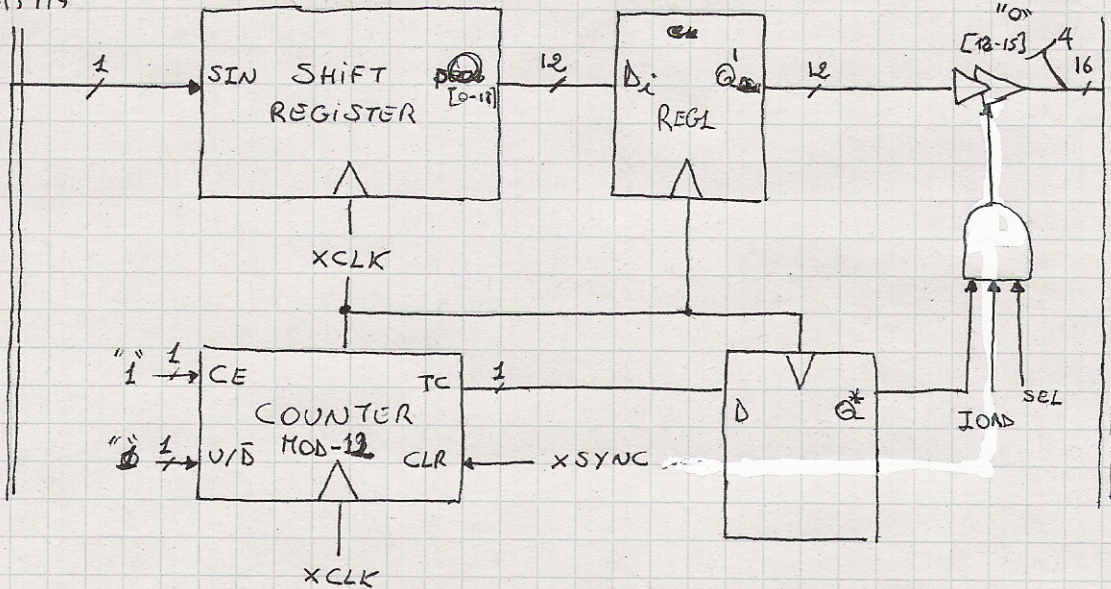 "0"
[12-15] 4
1
SIN SHIFT
REGISTER
12
Di Q
REG1
12
16
XCLK
"1" 1 CE
TC 1
COUNTER
MOD-12
1 U/D̅
CLR
XSYNC
D Q*
IORD
SEL
XCLK